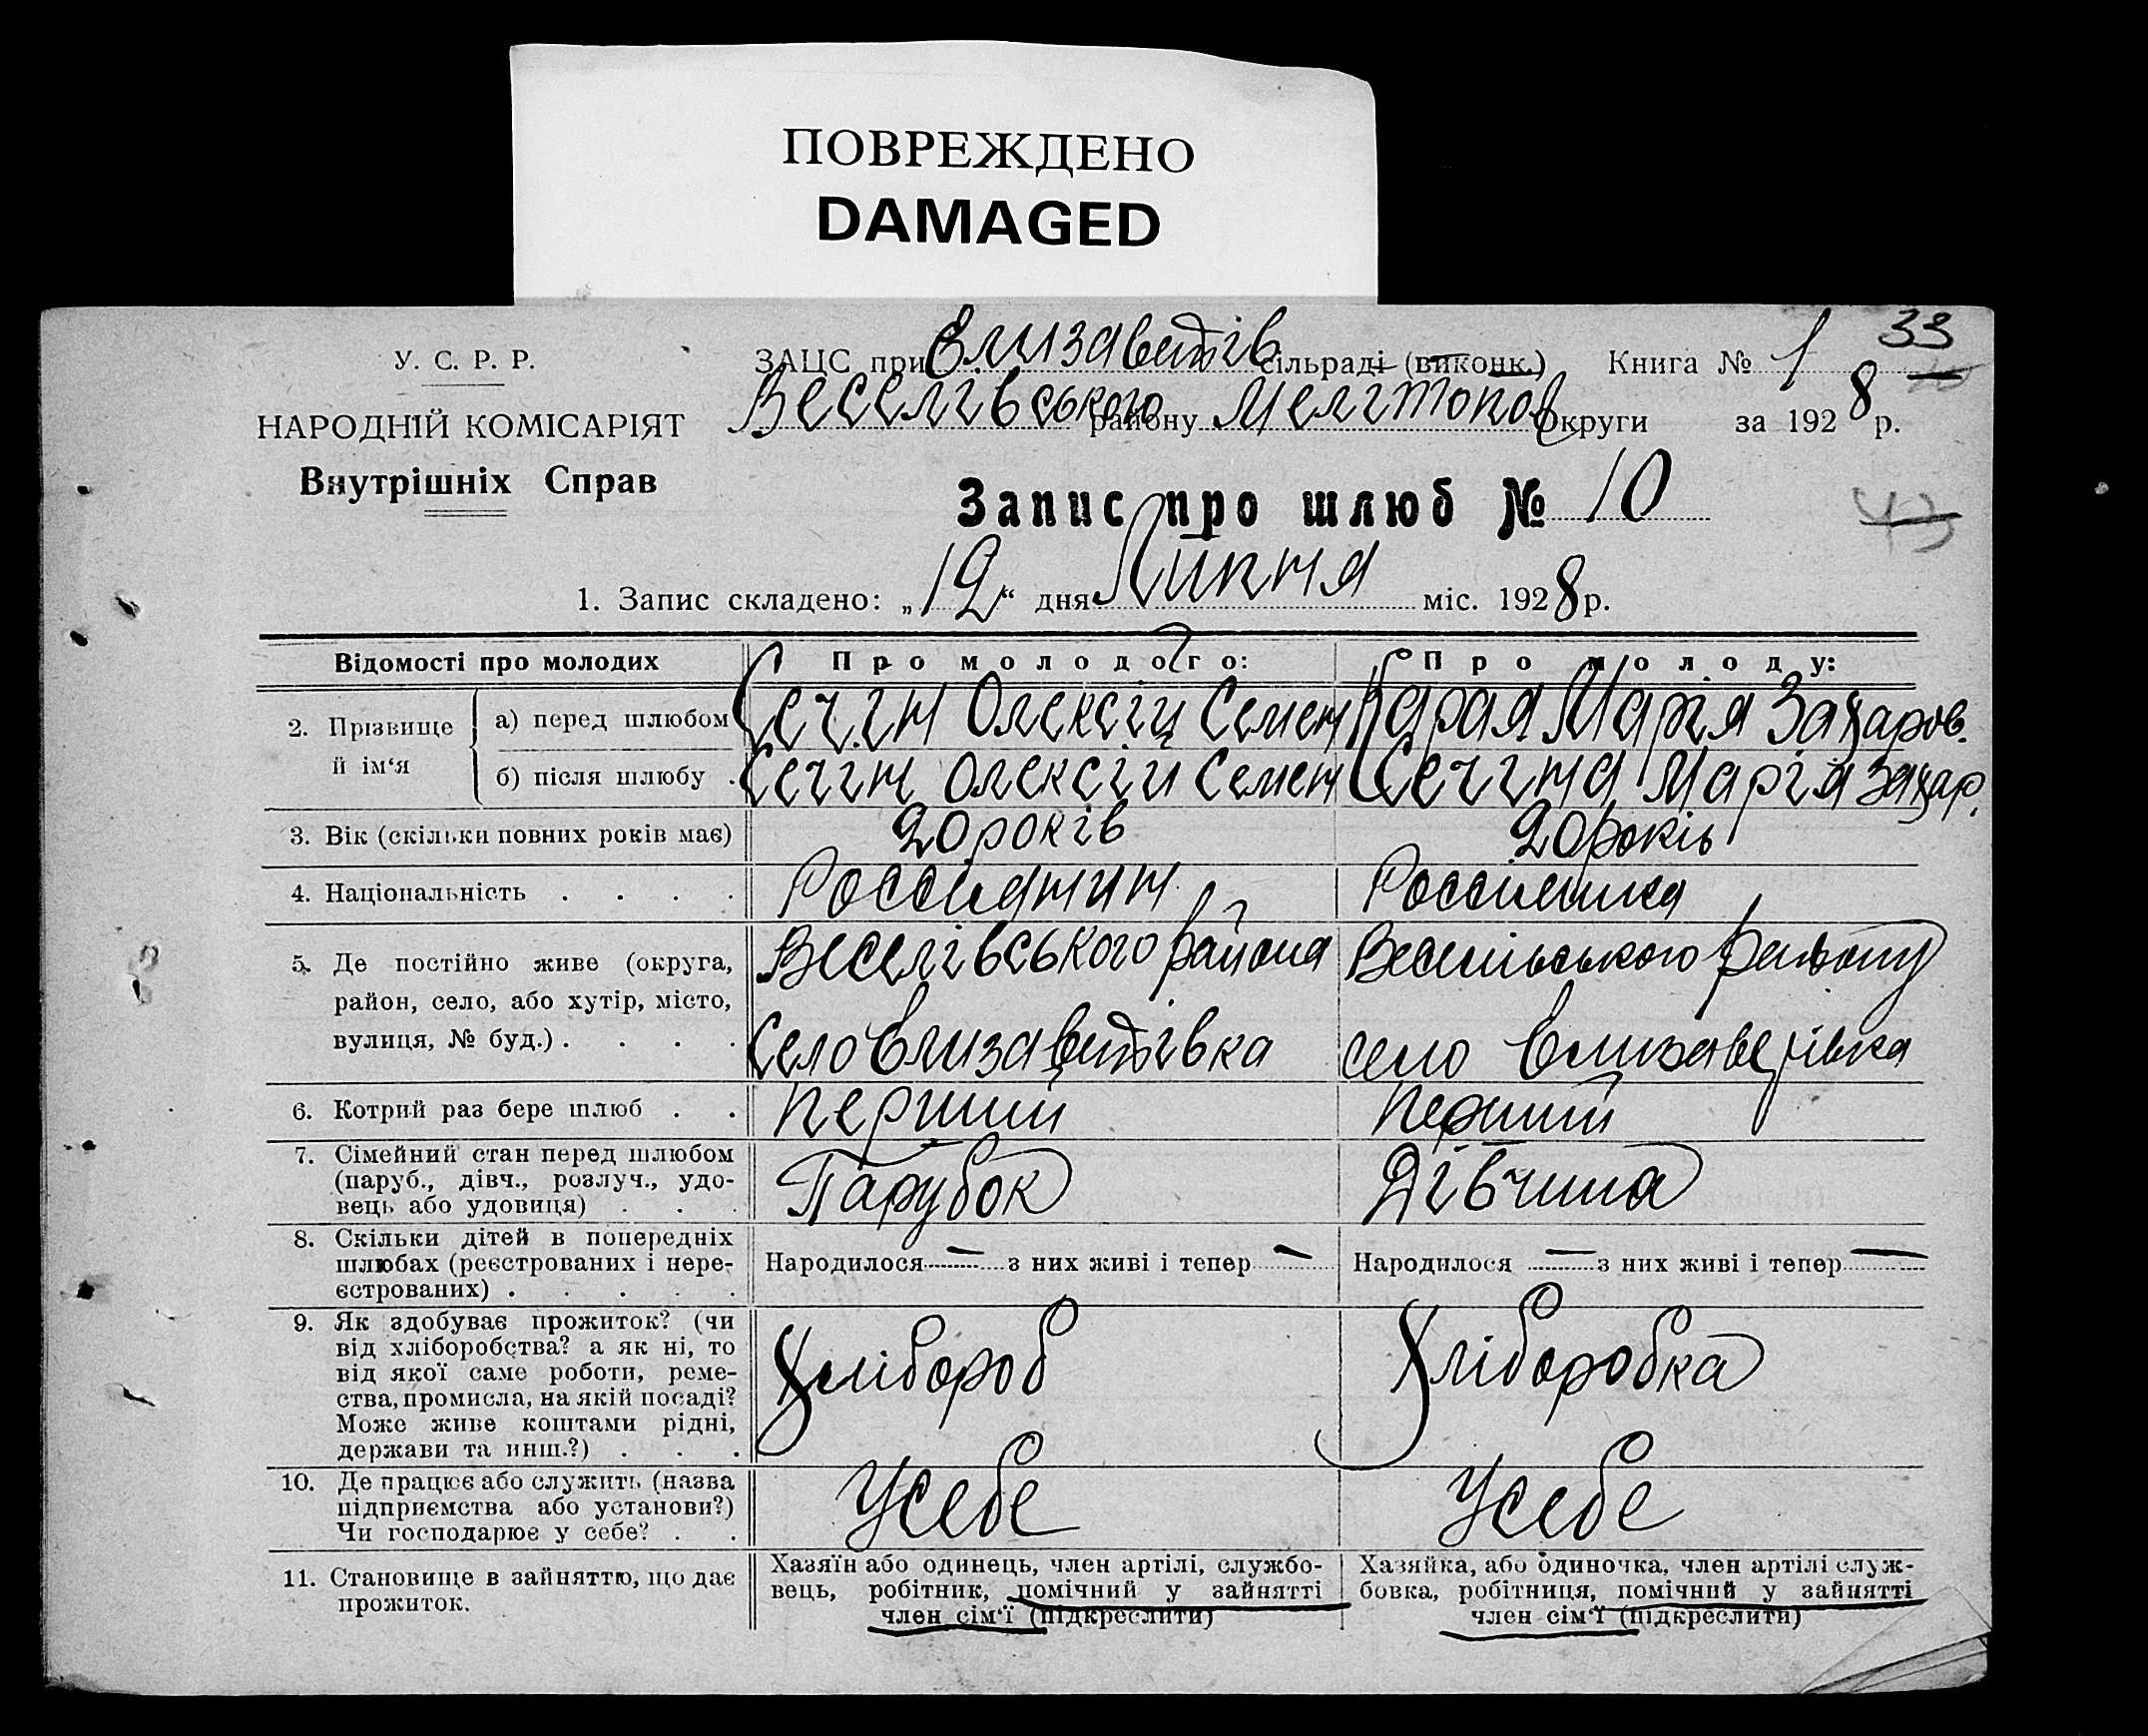 ПОВРЕЖДЕНО
DAMAGED
33
У. С. Р. Р.
ЗАЦС при Елизаветів сільраді (виконк.) Книга № 1
НАРОДНІЙ КОМІСАРІЯТ
Веселівського району Мелітопол Округи за 1928 р.
Внутрішніх Справ
Запис про шлюб № 10
43
1. Запис складено: „12“ дня Липня міс. 1928 р.
Відомості про молодих
Про молодого:
Про молоду:
2. Прізвище й ім‘я
а) перед шлюбом
Сечін Олексій Семен
Карая Марія Захаров.
б) після шлюбу .
Сечін Олексій Семен
Сечіна Марія Захар.
3. Вік (скільки повних років має)
20 років
20 років
4. Національність . . . .
Россиянин
Россиянка
5. Де постійно живе (округа,
район, село, або хутір, місто,
вулиця, № буд.) . . . .
Веселівського района
Село Елизаветівка
Веселівського району
село Елизаветівка
6. Котрий раз бере шлюб . .
перший
перший
7. Сімейний стан перед шлюбом
(паруб., дівч., розлуч., удо-
вець або удовиця) . . .
Парубок
Дівчина
8. Скільки дітей в попередніх
шлюбах (реєстрованих і нере-
єстрованих) . . . . .
Народилося — з них живі і тепер —
Народилося — з них живі і тепер —
9. Як здобуває прожиток? (чи
від хліборобства? а як ні, то
від якої саме роботи, реме-
ства, промисла, на якій посаді?
Може живе коштами рідні,
держави та инш.?) . . .
Хлібороб
Хліборобка
10. Де працює або служить (назва
підприємства або установи?)
Чи господарює у себе? . .
У себе
У себе
11. Становище в зайняттю, що дає
прожиток.
Хазяїн або одинець, член артілі, службо-
вець, робітник, помічний у зайнятті
член сім‘ї (підкреслити)
Хазяйка, або одиночка, член артілі служ-
бовка, робітниця, помічний у зайнятті
член сім‘ї (підкреслити)